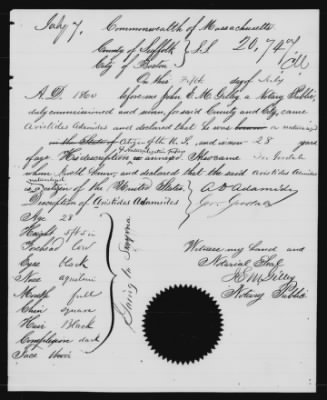 July 7.
Commonwealth of Massachusetts
County of Suffolk } S.S.
City of Boston
20,747
On this Fifth day of July
A.D. 1860 before me John E. M. Gilley a Notary Public,
duly commissioned and sworn, for said County and City, came
Aristides Adamides and declared that he was born a naturalized
in the State of citizen of the U. S., and is now 28 years
of age. His description is annexed. Also came
whom I well know, and declared that the said Aristides Adamides
is a naturalized citizen of the United States.
Description of Aristides Adamides
A Adamides
Age 28
Height 5/4 in
Forehead low
Eyes black
Nose aquiline
Mouth full
Chin square
Hair Black
Complexion dark
Face thin
Going to Smyrna
Witness my hand and
Notarial Seal
J E M Gilley
Notary Public